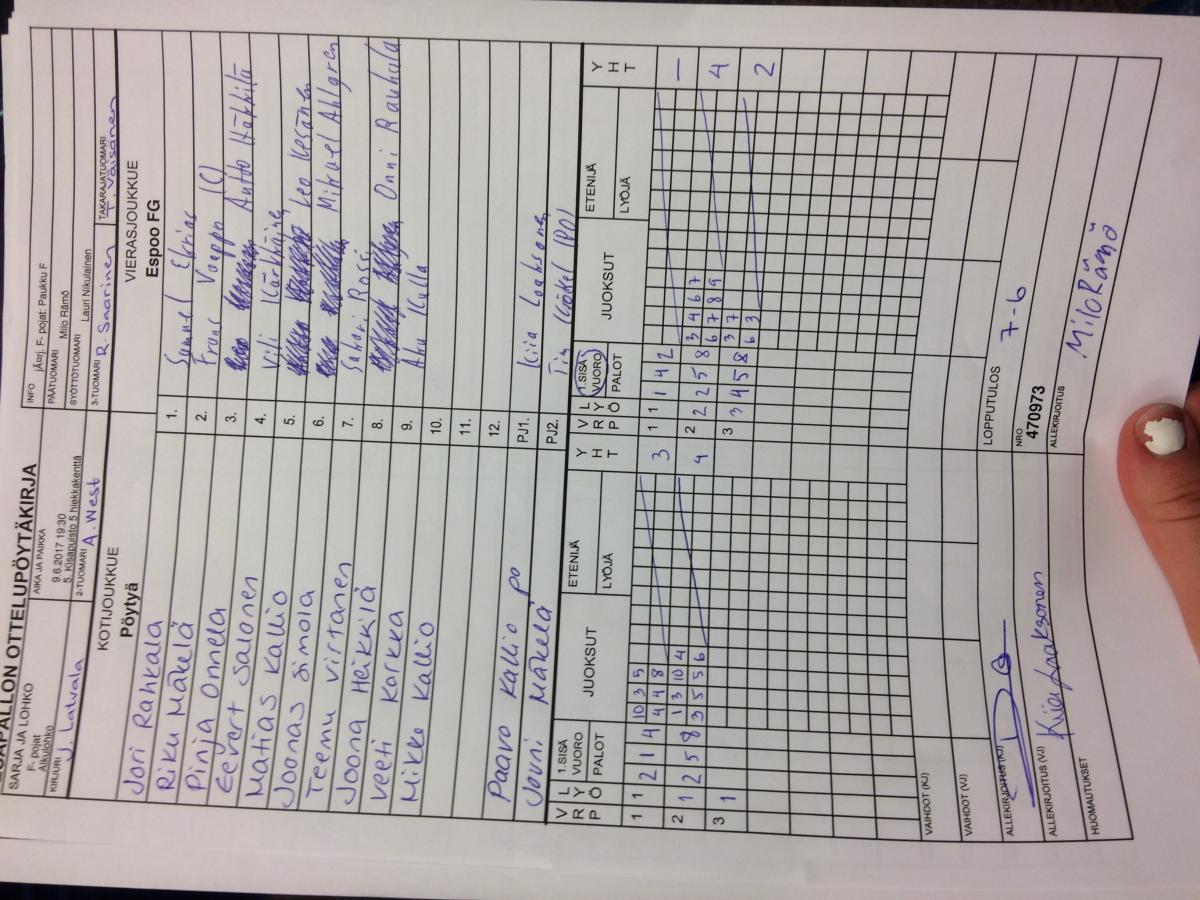 SAPALLON OTTELUPÖYTÄKIRJA
SARJA JA LOHKO
F- pojat
Alkulohko
AIKA JA PAIKKA
9.6.2017 19:30
5. Kisapuisto 5 hiekkakenttä
INFO
jÃ¤rj. F- pojat: Paukku F
PÄÄTUOMARI Milo Rämö
SYÖTTÖTUOMARI Lauri Nikulainen
KIRJURI J. Latvala
2-TUOMARI A. West
3-TUOMARI R. Saarinen
TAKARAJATUOMARI T. Väisänen
KOTIJOUKKUE
Pöytyä
VIERASJOUKKUE
Espoo FG
Jori Rahkala 1. Samuel
Riku Mäkelä 2. Frans (C)
Pinja Onnela 3. Antto Häkkilä
Eevert Salonen 4. Vili Kärkkäinen
Matias Kallio 5. Leo Kesänen
Joonas Simola 6. Mikael Ahlgren
Teemu Virtanen 7. Sakari Rossi
Joona Heikkilä 8. Onni Rauhala
Veeti Korkka 9. Anu Kulla
Mikko Kallio 10.
11.
12.
Paavo Kallio po PJ1. Kiia Laaksonen
Jouni Mäkelä PJ2.
VRP LYÖ 1.SISÄ VUORO PALOT JUOKSUT ETENIJÄ LYÖJÄ YHT VRP LYÖ 1.SISÄ VUORO PALOT JUOKSUT ETENIJÄ LYÖJÄ YHT
1 1 2 1 4 10 3 5 3 1 1 1 4 2 –
4 4 8
2 1 2 5 8 1 3 10 4 4 2 2 2 5 8 3 4 6 7 4
3 5 5 6 6 7 8 9
3 1 3 3 4 5 8 3 7 2
6 3
VAIHDOT (KJ)
VAIHDOT (VJ)
LOPPUTULOS 7-6
ALLEKIRJOITUS (KJ)
NRO
470973
ALLEKIRJOITUS (VJ) Kiia Laaksonen
ALLEKIRJOITUS Milo Rämö
HUOMAUTUKSET